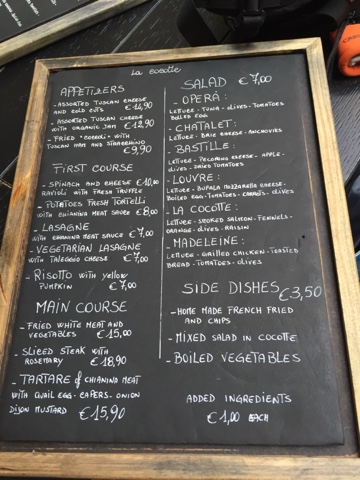 La cocotte
APPETIZERS
- ASSORTED TUSCAN CHEESE
AND COLD CUTS €14,90
- ASSORTED TUSCAN CHEESE
WITH ORGANIC JAM €12,90
- FRIED "COCCOLI" WITH
TUSCAN HAM AND STRACCHINO
€9,90
FIRST COURSE
- SPINACH AND CHEESE €10,00
RAVIOLI WITH FRESH TRUFFLE
- POTATOES FRESH TORTELLI
WITH CHIANINA MEAT SAUCE €8,00
- LASAGNE
WITH CHIANINA MEAT SAUCE €7,00
- VEGETARIAN LASAGNE
WITH TALEGGIO CHEESE €7,00
- RISOTTO WITH yellow
PUMPKIN €7,00
MAIN COURSE
- FRIED WHITE MEAT AND
VEGETABLES €15,00
- SLICED STEAK WITH
ROSEMARY €18,90
- TARTARE of CHIANINA MEAT
WITH QUAIL EGG - CAPERS - ONION
DIJON MUSTARD €15,90
SALAD €7,00
- OPERÀ:
LETTUCE - TUNA - OLIVES - TOMATOES
BOILED EGG
- CHATALET:
LETTUCE - BRIE CHEESE - ANCHOVIES
- BASTILLE:
LETTUCE - PECORINO CHEESE - APPLE -
OLIVES - DRIED TOMATOES
- LOUVRE:
LETTUCE - BUFALA MOZZARELLA CHEESE -
BOILED EGG - TOMATOES - CARROTS - OLIVES
- LA COCOTTE:
LETTUCE - SMOKED SALMON - FENNELS -
ORANGE - OLIVES - RAISIN
- MADELEINE:
LETTUCE - GRILLED CHICKEN - TOASTED
BREAD - TOMATOES - OLIVES
SIDE DISHES
€3,50
- HOME MADE FRENCH FRIED
AND CHIPS
- MIXED SALAD IN COCOTTE
- BOILED VEGETABLES
ADDED INGREDIENTS
€1,00 EACH